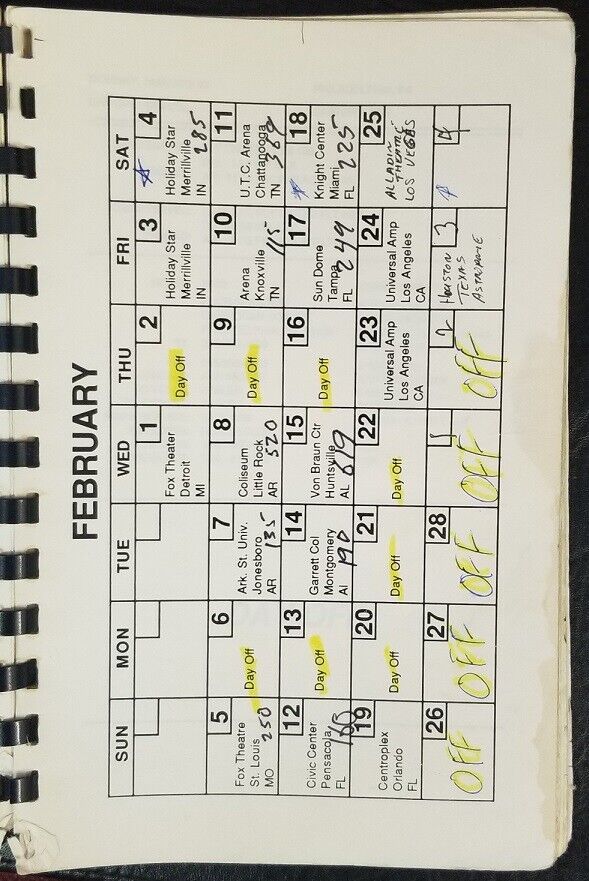 FEBRUARY
SUN MON TUE WED THU FRI SAT
1
Fox Theater
Detroit
MI
2
Day Off
3
Holiday Star
Merrillville
IN
4
Holiday Star
Merrillville
IN 285
5
Fox Theatre
St. Louis
MO 250
6
Day Off
7
Ark. St. Univ.
Jonesboro
AR 135
8
Coliseum
Little Rock
AR 520
9
Day Off
10
Arena
Knoxville
TN 115
11
U.T.C. Arena
Chattanooga
TN 369
12
Civic Center
Pensacola
FL
13
Day Off
14
Garrett Col
Montgomery
Al 190
15
Von Braun Ctr
Huntsville
AL 619
16
Day Off
17
Sun Dome
Tampa
FL 249
18
Knight Center
Miami
FL 225
19
Centroplex
Orlando
FL
20
Day Off
21
Day Off
22
Day Off
23
Universal Amp
Los Angeles
CA
24
Universal Amp
Los Angeles
CA
25
ALLADIN
THEATRE
LOS VEGAS
26
OFF
27
OFF
28
OFF
1
OFF
2
OFF
3
HOUSTON
TEXAS
ASTRODOME
4